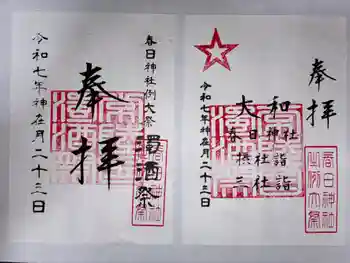 春日神社例大祭
濁酒祭
奉拝
令和七年神在月二十三日
奉拝
大和
春日神社
三社詣
令和七年神在月二十三日
春日神社
之例大祭